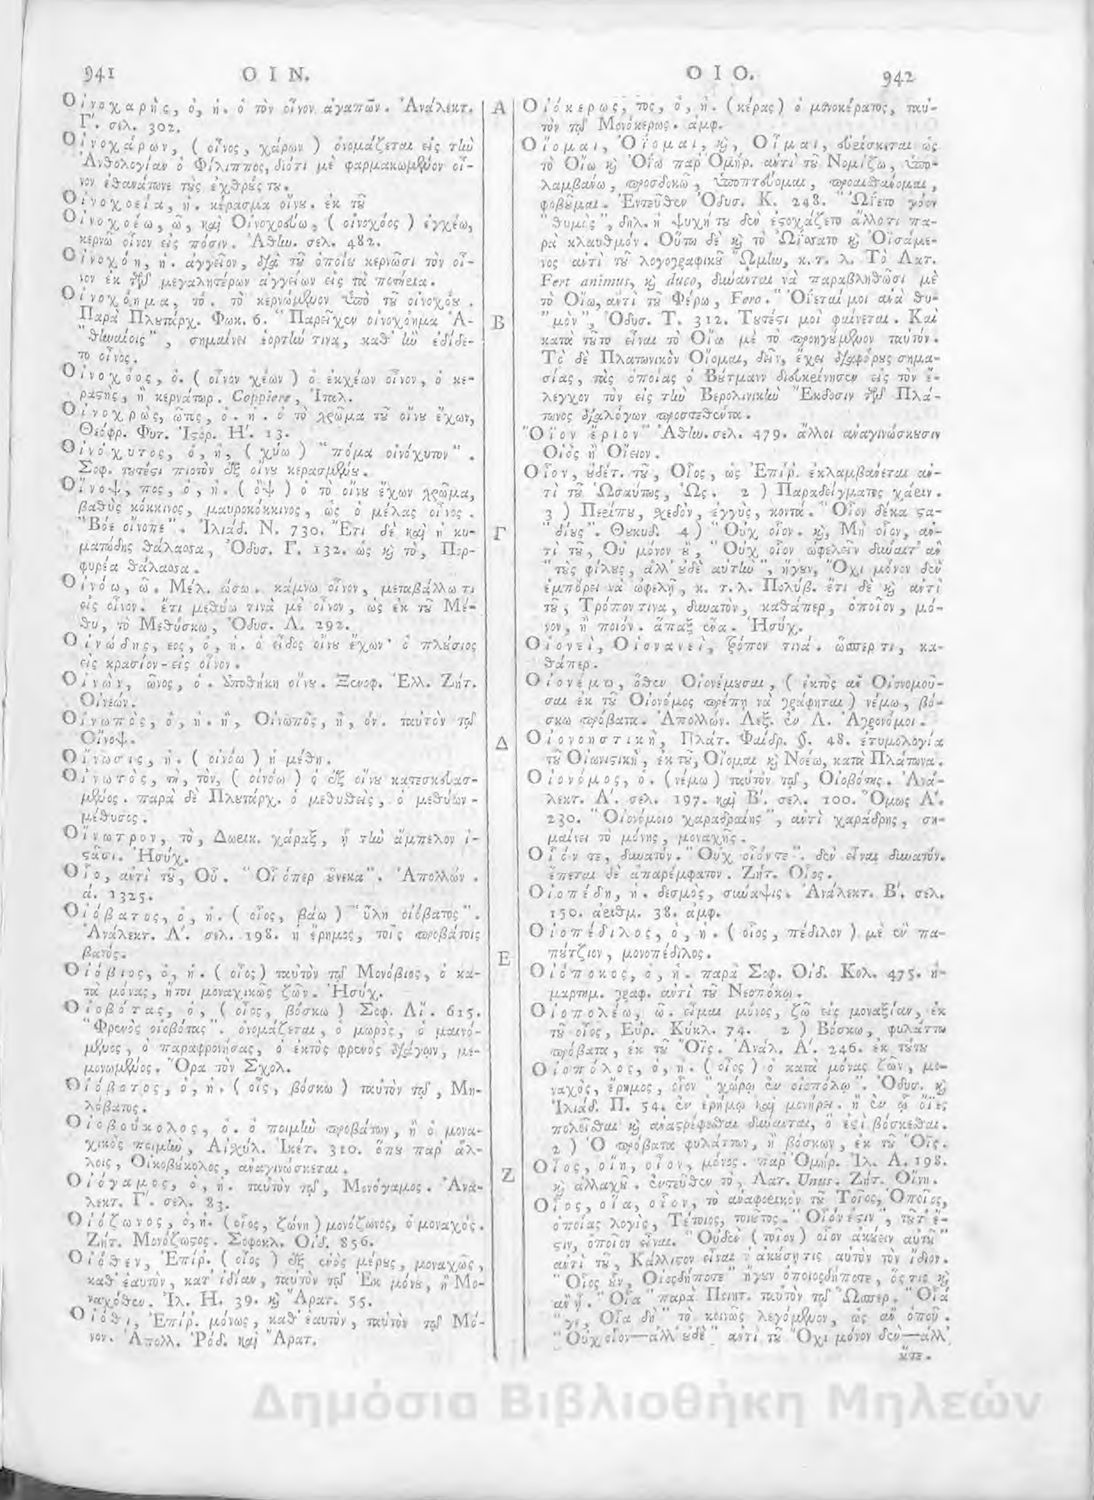 941 Ο Ι Ν.
Οἰνοχαρὴς, ὁ, ἡ. ὁ τὸν οἶνον ἀγαπῶν. Ἀνάλεκτ.
Γ'. σελ. 302.
Οἰνοχάρων, ( οἶνος, χάρων ) ὀνομάζεται εἰς τὴν
Ἀνθολογίαν ὁ Φίλιππος, διότι μὲ φαρμακωμένον οἶ-
νον ἐθανάτωνε τοὺς ἐχθρούς του.
Οἰνοχοεία, ἡ. κέρασμα οἴνου. ἐκ τοῦ
Οἰνοχοέω, ῶ, καὶ Οἰνοχοεύω, ( οἰνοχόος ) ἐγχέω,
κερνῶ οἶνον εἰς πόσιν. Ἀθήν. σελ. 482.
Οἰνοχόη, ἡ. ἀγγεῖον, διὰ τοῦ ὁποίου κερνῶσι τὸν οἶ-
νον ἐκ τῶν μεγαλητέρων ἀγγείων εἰς τὰ ποτήρια.
Οἰνοχόημα, τό. τὸ κερνώμενον ὑπὸ τοῦ οἰνοχόου.
Παρὰ Πλουτάρχ. Φωκ. 6. "Παρεῖχεν οἰνοχόημα Ἀ-
"θηναίοις", σημαίνει ἑορτήν τινα, καθ' ἣν ἐδίδε-
το οἶνος.
Οἰνοχόος, ὁ. ( οἶνον χέων ) ὁ ἐκχέων οἶνον, ὁ κε-
ραστὴς, ἢ κερνάτωρ. Coppiere, Ἰταλ.
Οἰνοχρὼς, ῶτος, ὁ. ἡ. ὁ τὸ χρῶμα τοῦ οἴνου ἔχων,
Θεόφρ. Φυτ. Ἱστόρ. Η'. 13.
Οἰνόχυτος, ὁ, ἡ, ( χύω ) "πόμα οἰνόχυτον".
Σοφ. τουτέστι πιοτὸν ἐξ οἴνου κερασμένου.
Οἴνοψ, πος, ὁ, ἡ. ( ὂψ ) ὁ τὸ οἴνου ἔχων χρῶμα,
βαθὺς κόκκινος, μαυροκόκκινος, ὡς ὁ μέλας οἶνος.
"Βόε οἴνοπε". Ἰλιάδ. Ν. 730. Ἔτι δὲ καὶ ἡ κυ-
ματώδης θάλασσα, Ὀδυσ. Γ. 132. ὡς καὶ τὸ, Πορ-
φυρέα θάλασσα.
Οἰνόω, ῶ. Μέλ. ώσω. κάμνω οἶνον, μεταβάλλω τι
εἰς οἶνον. ἔτι μεθύω τινὰ μὲ οἶνον, ὡς ἐκ τοῦ Μέ-
θυ, τὸ Μεθύσκω, Ὀδυσ. Λ. 292.
Οἰνώδης, εος, ὁ, ἡ. ὁ εἶδος οἴνου ἔχων· ὁ πλούσιος
εἰς κρασίον-εἰς οἶνον.
Οἰνὼν, ῶνος, ὁ. ἀποθήκη οἴνου. Ξενοφ. Ἑλλ. Ζήτ.
Οἰνεών.
Οἰνωπὸς, ὁ, ἡ. ἢ, Οἰνωπὸς, ἡ, όν. ταυτὸν τῷ
Οἴνοψ.
Οἴνωσις, ἡ. ( οἰνόω ) ἡ μέθη.
Οἰνωτὸς, τὴ, τὸν, ( οἰνόω ) ὁ ἐξ οἴνου κατεσκευασ-
μένος. παρὰ δὲ Πλουτάρχ. ὁ μεθυσθεὶς, ὁ μεθύων-
μέθυσος.
Οἴνωτρον, τὸ, Δωρικ. χάραξ, ᾗ τὴν ἄμπελον ἱ-
στᾶσι. Ἡσύχ.
Οἷο, ἀντὶ τοῦ, Οὗ. "Οἷόπερ οὕνεκα". Ἀπολλών.
ά. 1325.
Οἰόβατος, ὁ, ἡ. ( οἶος, βάω ) "ὕλη οἰόβατος".
Ἀνάλεκτ. Α'. σελ. 198. ἡ ἔρημος, τοῖς προβάτοις
βατός.
Οἰόβιος, ὁ, ἡ. ( οἶος ) ταυτὸν τῷ Μονόβιος, ὁ κα-
τὰ μόνας, ἤτοι μοναχικῶς ζῶν. Ἡσύχ.
Οἰοβότας, ὁ, ( οἶος, βόσκω ) Σοφ. Αἴ. 615.
"Φρενὸς οἰοβότας". ὀνομάζεται, ὁ μωρὸς, ὁ μαινό-
μενος, ὁ παραφρονήσας, ὁ ἐκτὸς φρενὸς διάγων, με-
μονωμένος. Ὅρα τὸν Σχολ.
Οἰόβοτος, ὁ, ἡ. ( οἶς, βόσκω ) ταυτὸν τῷ, Μη-
λόβατος.
Οἰοβούκολος, ὁ. ὁ ποιμὴν προβάτων, ἢ ὁ μονα-
χικὸς ποιμὴν, Αἰσχύλ. Ἱκέτ. 310. ὅπου παρ' ἄλ-
λοις, Οἰκοβουκόλος, ἀναγινώσκεται.
Οἰόγαμος, ὁ, ἡ. ταυτὸν τῷ, Μονόγαμος. Ἀνά-
λεκτ. Γ'. σελ. 83.
Οἰόζωνος, ὁ, ἡ. ( οἶος, ζώνη ) μονόζωνος, ὁ μοναχὸς.
Ζήτ. Μονόζωστος. Σοφοκλ. Οἰδ. 856.
Οἰόθεν, Ἐπίρ. ( οἶος ) ἐξ ἑνὸς μέρους, μοναχῶς,
καθ' ἑαυτὸν, κατ' ἰδίαν, ταυτὸν τῷ Ἐκ μόνου, ἢ Μο-
ναχόθεν. Ἰλ. Η. 39. καὶ Ἄρατ. 55.
Οἰόθι, Ἐπίρ. μόνως, καθ' ἑαυτὸν, ταυτὸν τῷ Μό-
νον. Ἀπολλ. Ῥόδ. καὶ Ἄρατ.
Α
Β
Γ
Δ
Ε
Ζ
Ο Ι Ο. 942
Οἰόκερως, τος, ὁ, ἡ. ( κέρας ) ὁ μονοκέρατος, ταυ-
τὸν τῷ Μονόκερως. ἀμφ.
Οἴομαι, Ὀΐομαι, καὶ, Οἶμαι, εὑρίσκεται ὡς
τὸ Οἴω καὶ Ὀΐω παρ' Ὁμήρ. ἀντὶ τοῦ Νομίζω, ὑπο-
λαμβάνω, προσδοκῶ, ὑποπτεύομαι, προαισθάνομαι,
φοβοῦμαι. Ἐντεῦθεν Ὀδυσ. Κ. 248. "Ὠΐετο γόον
"θυμὸς", δηλ. ἡ ψυχή του δὲν ἐστοχάζετο ἄλλο τι πα-
ρὰ κλαυθμόν. Οὕτω δὲ καὶ τὸ Ὠΐσατο καὶ Ὀϊσάμε-
νος ἀντὶ τοῦ λογογραφικοῦ Ὤμην, κ. τ. λ. Τὸ Λατ.
Fert animus, καὶ duco, δύνανται νὰ παραβληθῶσι μὲ
τὸ Οἴω, ἀντὶ τοῦ Φέρω, Fero. "Οἴεταί μοι ἀνὰ θυ-
"μὸν", Ὀδυσ. Τ. 312. Τουτέστι μοὶ φαίνεται. Καὶ
κατὰ τοῦτο εἶναι τὸ Οἴω μὲ τὸ προηγούμενον ταυτόν.
Τὸ δὲ Πλατωνικὸν Οἴομαι, δεῖν, ἔχει διαφόρους σημα-
σίας, τὰς ὁποίας ὁ Βούτμανν διευκρίνησεν εἰς τὸν ἔ-
λεγχον τὸν εἰς τὴν Βερολινικὴν Ἔκδοσιν τῶν Πλά-
τωνος διαλόγων προστεθέντα.
"Οἴον ἔριον" Ἀθήν. σελ. 479. ἄλλοι ἀναγινώσκουσιν
Οἰὸς ἢ Οἴειον.
Οἷον, οὐδέτ. τοῦ, Οἷος, ὡς Ἐπίρ. ἐκλαμβάνεται ἀν-
τὶ τοῦ Ὡσαύτως, Ὡς. 2 ) Παραδείγματος χάριν.
3 ) Περίπου, σχεδὸν, ἐγγὺς, κοντά. "Οἷον δέκα στα-
"δίους". Θουκυδ. 4 ) "Οὐχ οἷον. καὶ, Μὴ οἷον, ἀν-
τὶ τοῦ, Οὐ μόνον οὐ, "Οὐχ οἷον ὠφελεῖν δύναιτ' ἂν
"τοὺς φίλους, ἀλλ' οὐδὲ αὑτὴν", ἤγουν, Ὄχι μόνον δὲν
ἐμπόρει νὰ ὠφελῇ, κ. τ. λ. Πολύβ. ἔτι δὲ καὶ ἀντὶ
τοῦ, Τρόπον τινα, δυνατὸν, καθάπερ, ὁποῖον, μό-
νον, ἢ ποιόν. ἅπαξ ἕνα. Ἡσύχ.
Οἱονεὶ, Οἱονανεὶ, τρόπον τινά. ὥσπερ τι, κα-
θάπερ.
Οἰονέμω, ὅθεν Οἰονέμουσαι, ( ἐκτὸς ἂν Οἰονομοῦ-
σαι ἐκ τοῦ Οἰονόμος πρέπῃ νὰ γράφηται ) νέμω, βό-
σκω πρόβατα. Ἀπολλών. Λεξ. ἐν Λ. Ἀγρονόμοι.
Οἰονοηστικὴ, Πλάτ. Φαίδρ. §. 48. ἐτυμολογία
τοῦ Οἰωνιστικὴ, ἐκ τοῦ, Οἴομαι καὶ Νοέω, κατὰ Πλάτωνα.
Οἰονόμος, ὁ. ( νέμω ) ταυτὸν τῷ, Οἰοβότης. Ἀνά-
λεκτ. Α'. σελ. 197. καὶ Β'. σελ. 100. Ὅμως Α'.
230. "Οἰονόμοιο χαράδραίης", ἀντὶ χαράδρης, ση-
μαίνει τὸ μόνης, μοναχῆς.
Οἷόν τε, δυνατόν. "Οὐχ οἷόντε". δὲν εἶναι δυνατόν.
ἕπεται δὲ ἀπαρέμφατον. Ζήτ. Οἷος.
Οἰοπέδη, ἡ. δεσμὸς, συνάψις. Ἀνάλεκτ. Β'. σελ.
150. ἀριθμ. 38. ἀμφ.
Οἰοπέδιλος, ὁ, ἡ. ( οἶος, πέδιλον ) μὲ ἓν πα-
πούτζιον, μονοπέδιλος.
Οἰόποκος, ὁ, ἡ. παρὰ Σοφ. Οἰδ. Κολ. 475. ἡ-
μαρτημ. γραφ. ἀντὶ τοῦ Νεοπόκῳ.
Οἰοπολέω, ῶ. εἶμαι μόνος, ζῶ εἰς μοναξίαν, ἐκ
τοῦ οἶος, Εὐρ. Κύκλ. 74. 2 ) Βόσκω, φυλάττω
πρόβατα, ἐκ τοῦ Ὄϊς. Ἀνάλ. Α'. 246. ἐκ τούτου
Οἰοπόλος, ὁ, ἡ. ( οἶος ) ὁ κατὰ μόνας ζῶν, μο-
ναχὸς, ἔρημος, οἷον "χώρῳ ἐν οἰοπόλῳ". Ὀδυσ. καὶ
Ἰλιάδ. Π. 54. ἐν ἐρήμῳ καὶ μονήρει. ἢ ἐν ᾧ ὄϊες
πολεῖσθαι καὶ ἀναστρέφεσθαι δύνανται, ὅ ἐστι βόσκεσθαι.
2 ) Ὁ πρόβατα φυλάττων, ἢ βόσκων, ἐκ τοῦ Ὄϊς.
Οἶος, οἴη, οἶον, μόνος. παρ' Ὁμήρ. Ἰλ. Α. 198.
καὶ ἀλλαχοῦ. ἐντεῦθεν τὸ, Λατ. Unus. Ζήτ. Οἴνη.
Οἷος, οἵα, οἷον, τὸ ἀναφορικὸν τοῦ Τοῖος, Ὁποῖος,
ὁποίας λογῆς, Τέτοιος, τοιοῦτος. "Οἷόν ἐστιν", τουτ' ἔ-
στιν, ὁποῖον εἶναι. "Οὐδὲν ( τοῖον ) οἷον ἀκούειν αὐτοῦ"
ἀντὶ τοῦ, Κάλλιστον εἶναι ν' ἀκούσῃ τις αὐτὸν τὸν ἴδιον.
"Οἷος οὖν, Οἱοσδήποτε" ἤγουν ὁποιοσδήποτε, ὅστις καὶ
ἂν ᾖ. "Οἷα" παρὰ Ποιητ. ταυτὸν τῷ "Ὥσπερ. "Οἷά
"γε, Οἷα δὴ" τὸ κοινῶς λεγόμενον, ὡς ἂν ὁποῦ.
"Οὐχ οἷον—ἀλλ' οὐδὲ" ἀντὶ τοῦ "Ὄχι μόνον δὲν—ἀλλ'
οὔτε.
Δημόσια Βιβλιοθήκη Μηλεών